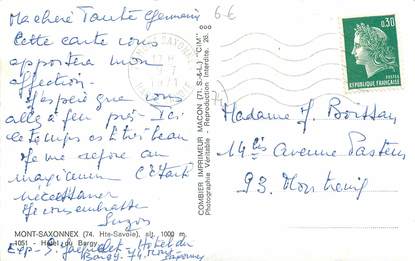 Ma chère Tante Germaine
Cette carte vous
apportera mon
affection.
J'espère que vous
allez à peu près - Ici
le temps est très beau
Je me repose au
maximum c'était
nécessaire
Je vous embrasse
Suzon
MONT-SAXONNEX (74. Hte-Savoie), alt. 1000 m.
1051 - Hôtel du Bargy
Exp - S. Jacquelet - Hôtel du
Bargy - 74. Mont
Saxonnex
COMBIER IMPRIMEUR MACON (71. S.-&-L.) "CIM"
Photographie Véritable - Reproduction Interdite. 26.
6 €
74
0,30
POSTES
REPUBLIQUE FRANÇAISE
Madame J. Boissan
14 bis Avenue Pasteur
93. Montreuil